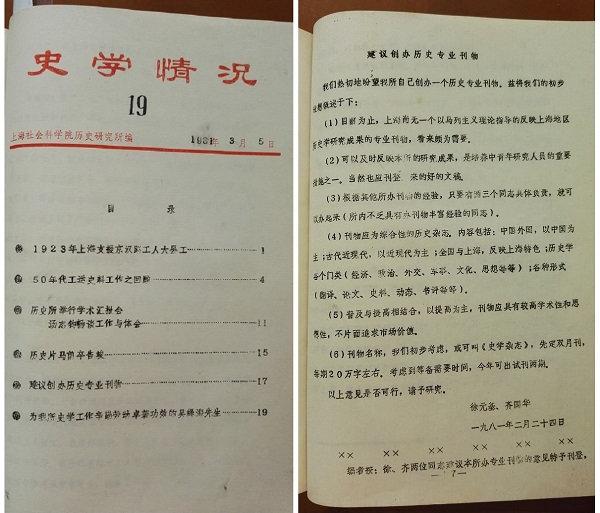 史学情况
19
上海社会科学院历史研究所编 1981年3月5日
目 录
1923年上海支援京汉路工人大罢工 1
50年代工运史料工作之回顾 4
历史所举行学术汇报会
汤志钧畅谈工作与体会 11
历史片 15
建议创办历史专业刊物 17
为我所史学工作辛勤劳动卓著功效的吴绎枫先生 19
建议创办历史专业刊物
我们热切地盼望我所自己创办一个历史专业刊物。兹将我们的初步
设想叙述于下:
(1)目前为止,上海尚无一个以马列主义理论指导的反映上海地区
历史学研究成果的专业刊物,看来颇为需要。
(2)可以及时反映本所的研究成果,是培养中青年研究人员的重要
措施之一。当然也应刊登 来的好的文稿。
(3)根据其他所办刊物的经验,只要有两三个同志具体负责,就可
以办起来(所内不乏具有办刊物丰富经验的同志)。
(4)刊物应为综合性的历史杂志,内容包括:中国外国,以中国为
主;古代近现代,以近现代为主;全国与上海,反映上海特色;历史学
各个门类(经济、政治、外交、军事、文化、思想等等);各种形式
(翻译、论文、史料、动态、书评等等)。
(5)普及与提高相结合,以提高为主,刊物应具有较高学术性和思
想性,不片面追求市场价值。
(6)刊物名称,我们初步考虑,或可叫《史学杂志》,先定双月刊,
每期20万字左右。考虑到筹备需要时间,今年可出试刊两期。
以上意见是否可行,请予研究。
徐元基、齐国华
一九八一年二月二十四日
×× ×× ×× ×× ×× ××
编者按:徐、齐两位同志建议本所办专业刊物的意见特予刊登,